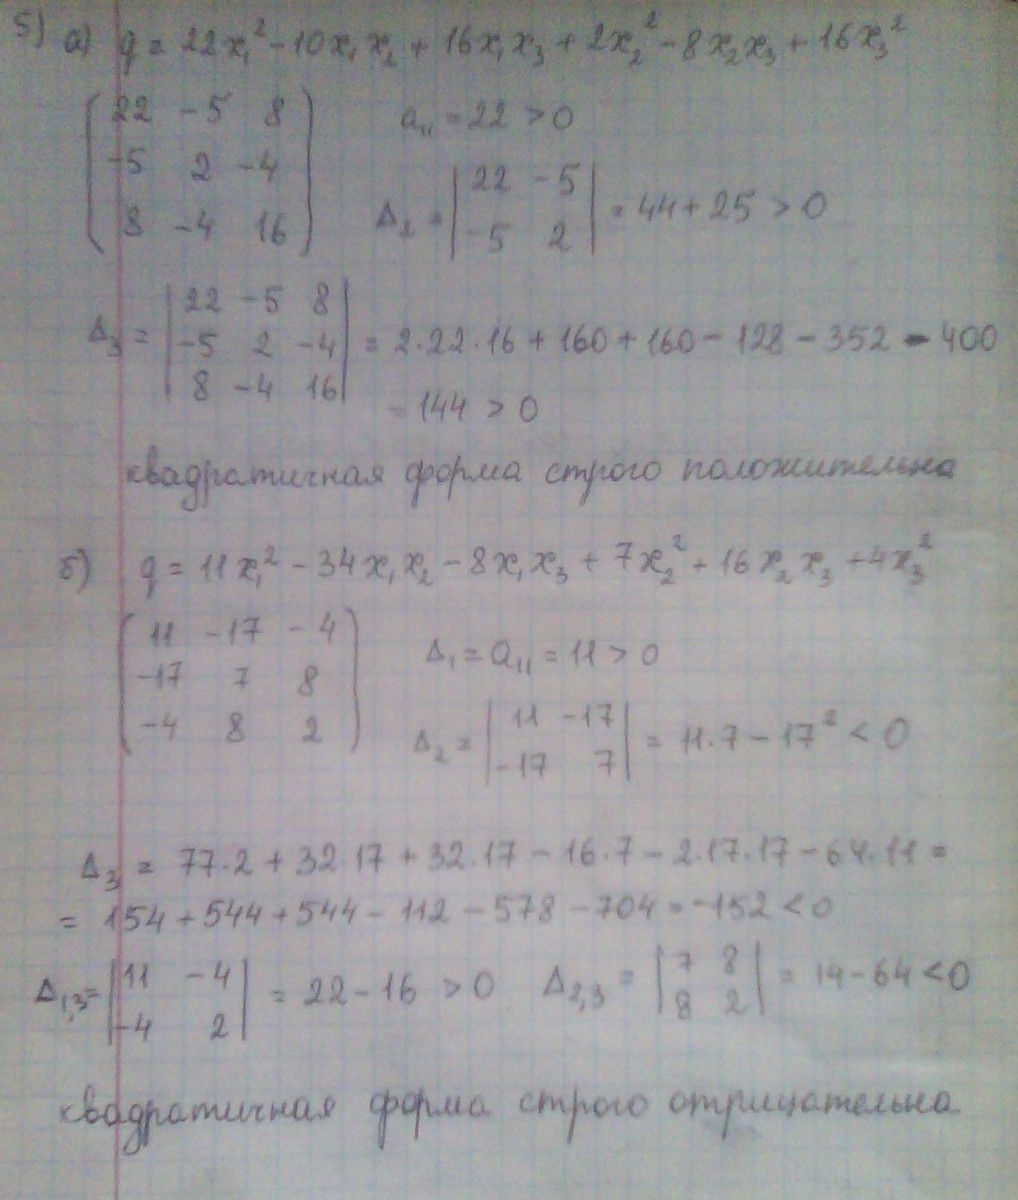 5) а) q = 22x₁² - 10x₁x₂ + 16x₁x₃ + 2x₂² - 8x₂x₃ + 16x₃²
22 -5 8
-5 2 -4
8 -4 16
a₁₁ = 22 > 0
Δ₂ = | 22 -5 |
| -5 2 | = 44 + 25 > 0
Δ₃ = | 22 -5 8 |
| -5 2 -4 | = 2·22·16 + 160 + 160 - 128 - 352 - 400
| 8 -4 16 |
= 144 > 0
квадратичная форма строго положительна
б) q = 11x₁² - 34x₁x₂ - 8x₁x₃ + 7x₂² + 16x₂x₃ + 4x₃²
11 -17 -4
-17 7 8
-4 8 2
Δ₁ = a₁₁ = 11 > 0
Δ₂ = | 11 -17 |
| -17 7 | = 11·7 - 17² < 0
Δ₃ = 77·2 + 32·17 + 32·17 - 16·7 - 2·17·17 - 64·11 =
= 154 + 544 + 544 - 112 - 578 - 704 = -152 < 0
Δ₁,₃ = | 11 -4 |
| -4 2 | = 22 - 16 > 0
Δ₂,₃ = | 7 8 |
| 8 2 | = 14 - 64 < 0
квадратичная форма строго отрицательна